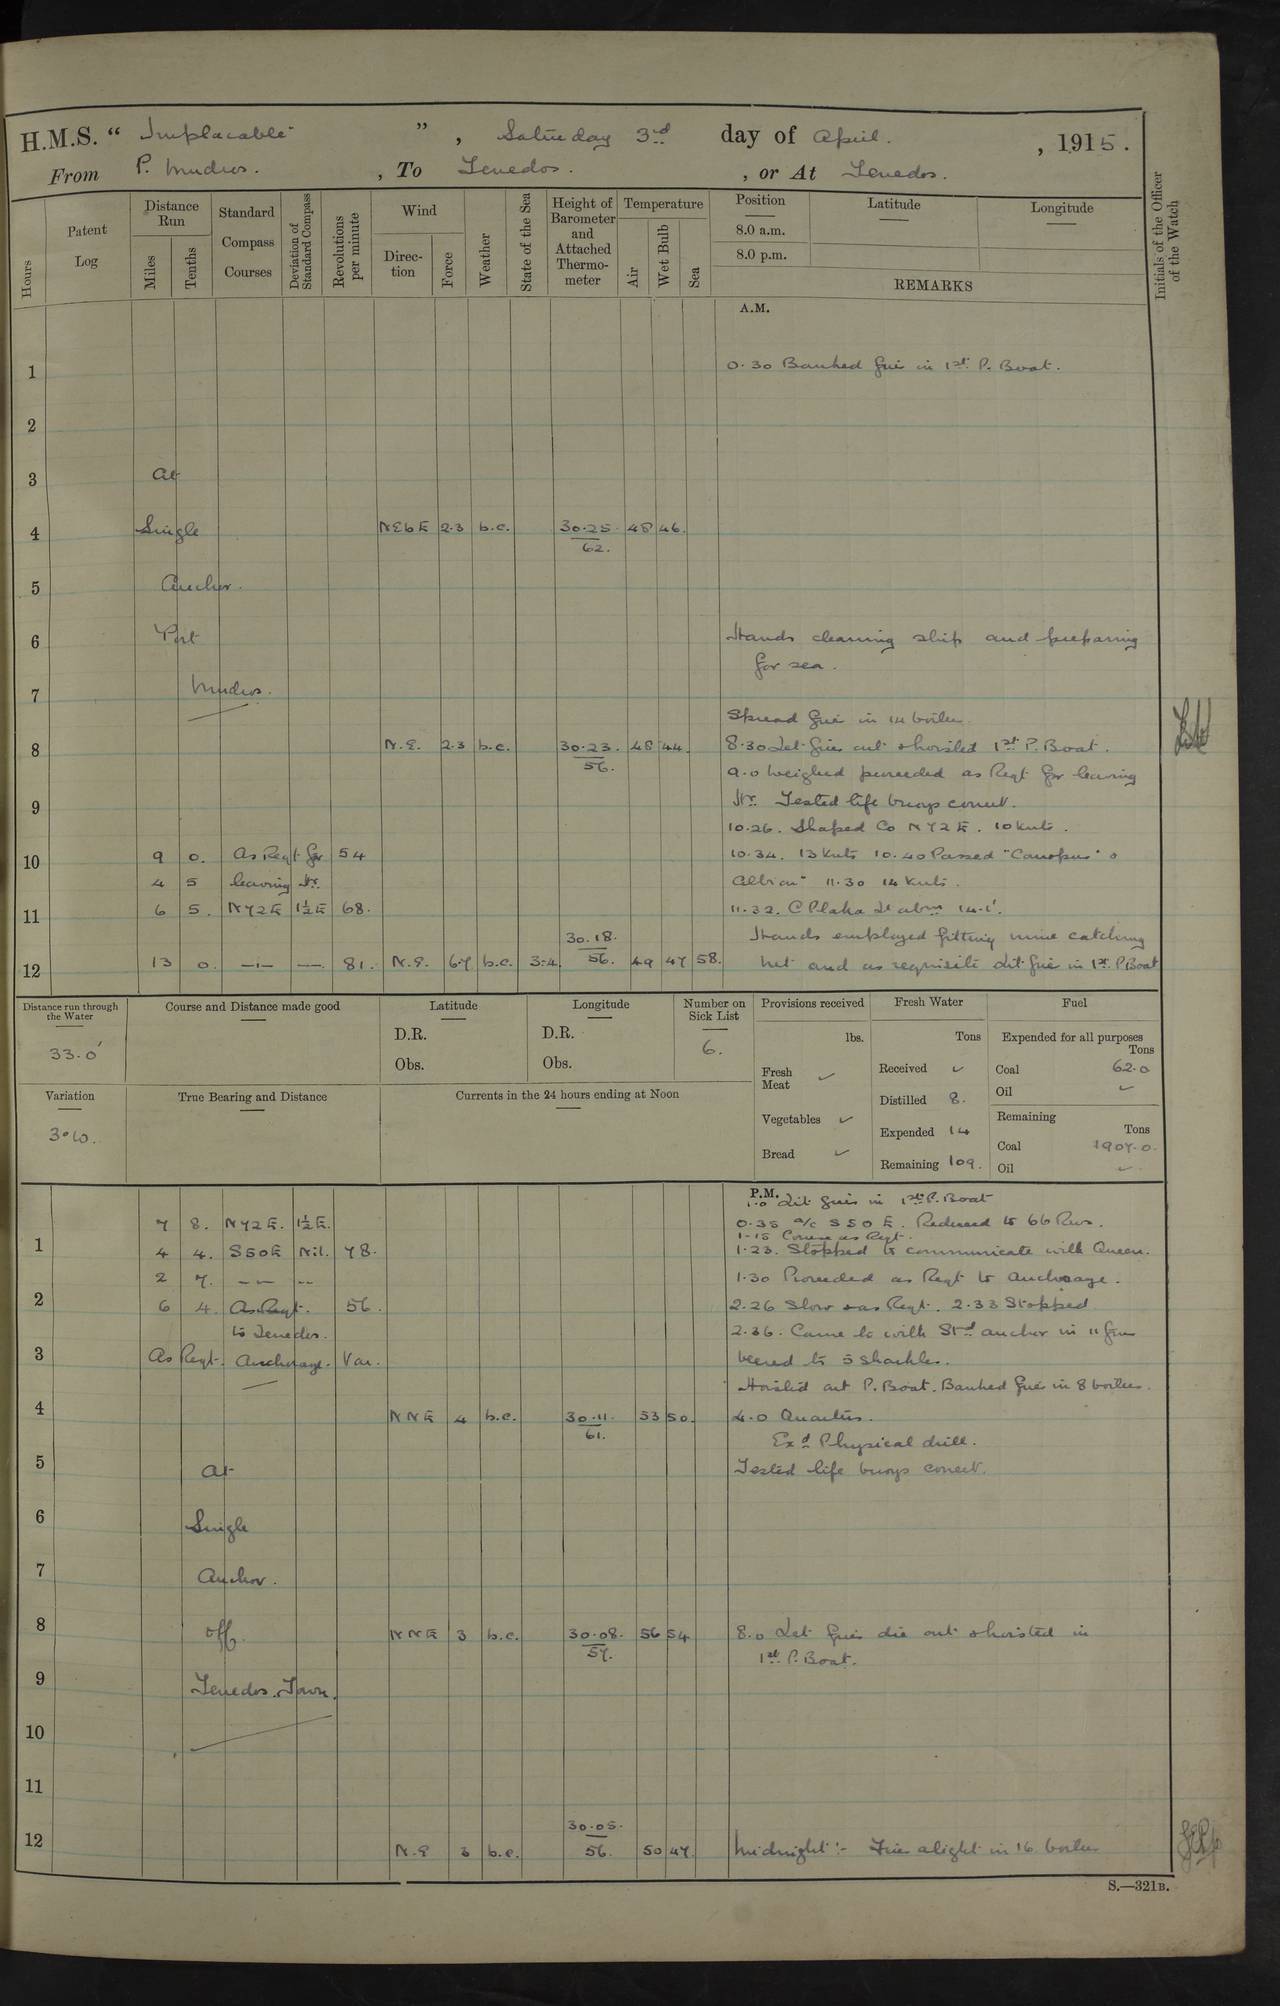 H.M.S. “ Implacable ” , Saturday 3rd day of April. , 1915.
From P. Mudros. , To Tenedos. , or At Tenedos.
Hours
Patent Log
Distance Run
Miles
Tenths
Standard Compass Courses
Deviation of Standard Compass
Revolutions per minute
Wind
Direction
Force
Weather
State of the Sea
Height of Barometer and Attached Thermometer
Temperature
Air
Wet Bulb
Sea
Position
8.0 a.m.
8.0 p.m.
Latitude
Longitude
REMARKS
Initials of the Officer of the Watch
A.M.
1 0.30 Banked fires in 1st P. Boat.
2
3 At
4 Single NEbE 2.3 b.c. 30.25 48 46.
62.
5 Anchor.
6 Port Hands cleaning ship and preparing
for sea.
7 Mudros.
Spread fires in 14 boilers
8 N.E. 2.3 b.c. 30.23. 48 44. 8.30 Let fires out & hoisted 1st P. Boat.
56.
9.0 Weighed proceeded as Reqt for leaving
9 Hr. Tested life buoys correct.
10.26. Shaped Co N72E. 10 Knts.
10 9 0. As Reqt for 54 10.34. 13 Knts 10.40 Passed "Canopus" &
4 5 leaving Hr. Albion" 11.30 14 Knts.
11 6 5. N72E 1½E 68. 11.32. C Plaka Lt abm 14.1'.
30.18. Hands employed fitting mine catching
12 13 0. —"— —— 81. N.E. 6.7 b.c. 3-4. 56. 49 47 58. net and as requisite Lit fires in 1st P Boat
Distance run through the Water
33.0'
Course and Distance made good
Latitude
D.R.
Obs.
Longitude
D.R.
Obs.
Number on Sick List
6.
Provisions received
lbs.
Fresh Meat ✓
Vegetables ✓
Bread ✓
Fresh Water
Tons
Received ✓
Distilled 8.
Expended 14
Remaining 109.
Fuel
Expended for all purposes
Tons
Coal 62.0
Oil ✓
Remaining
Tons
Coal 1907.0.
Oil ✓
Variation
3°W.
True Bearing and Distance
Currents in the 24 hours ending at Noon
P.M.
1.0 Lit fires in 1st P. Boat
7 8. N72E. 1½E. 0.35 a/c S50E. Reduced to 66 Revs.
1.15 Course as Reqt.
1 4 4. S50E Nil. 78. 1.23. Stopped to communicate with Queen.
2 7. —"— —— 1.30 Proceeded as Reqt to anchorage.
2 6 4. As Reqt. 56. 2.26 Slow & as Reqt. 2.33 Stopped
to Tenedos. 2.36. Came to with Stbd anchor in 11 fms
3 As Reqt. Anchorage. Var. veered to 5 shackles.
Hoisted out P. Boat. Banked fires in 8 boilers.
4 NNE 4 b.c. 30.11. 53 50. 4.0 Quarters.
61. Exd Physical drill.
5 At Tested life buoys correct.
6 Single
7 Anchor.
8 off NNE 3 b.c. 30.08. 56 54 8.0 Let fires die out & hoisted in
57. 1st P. Boat.
9 Tenedos Town.
10
11
30.05.
12 N.E 3 b.c. 56. 50 47. Midnight :- Fires alight in 16 boilers
S.—321B.